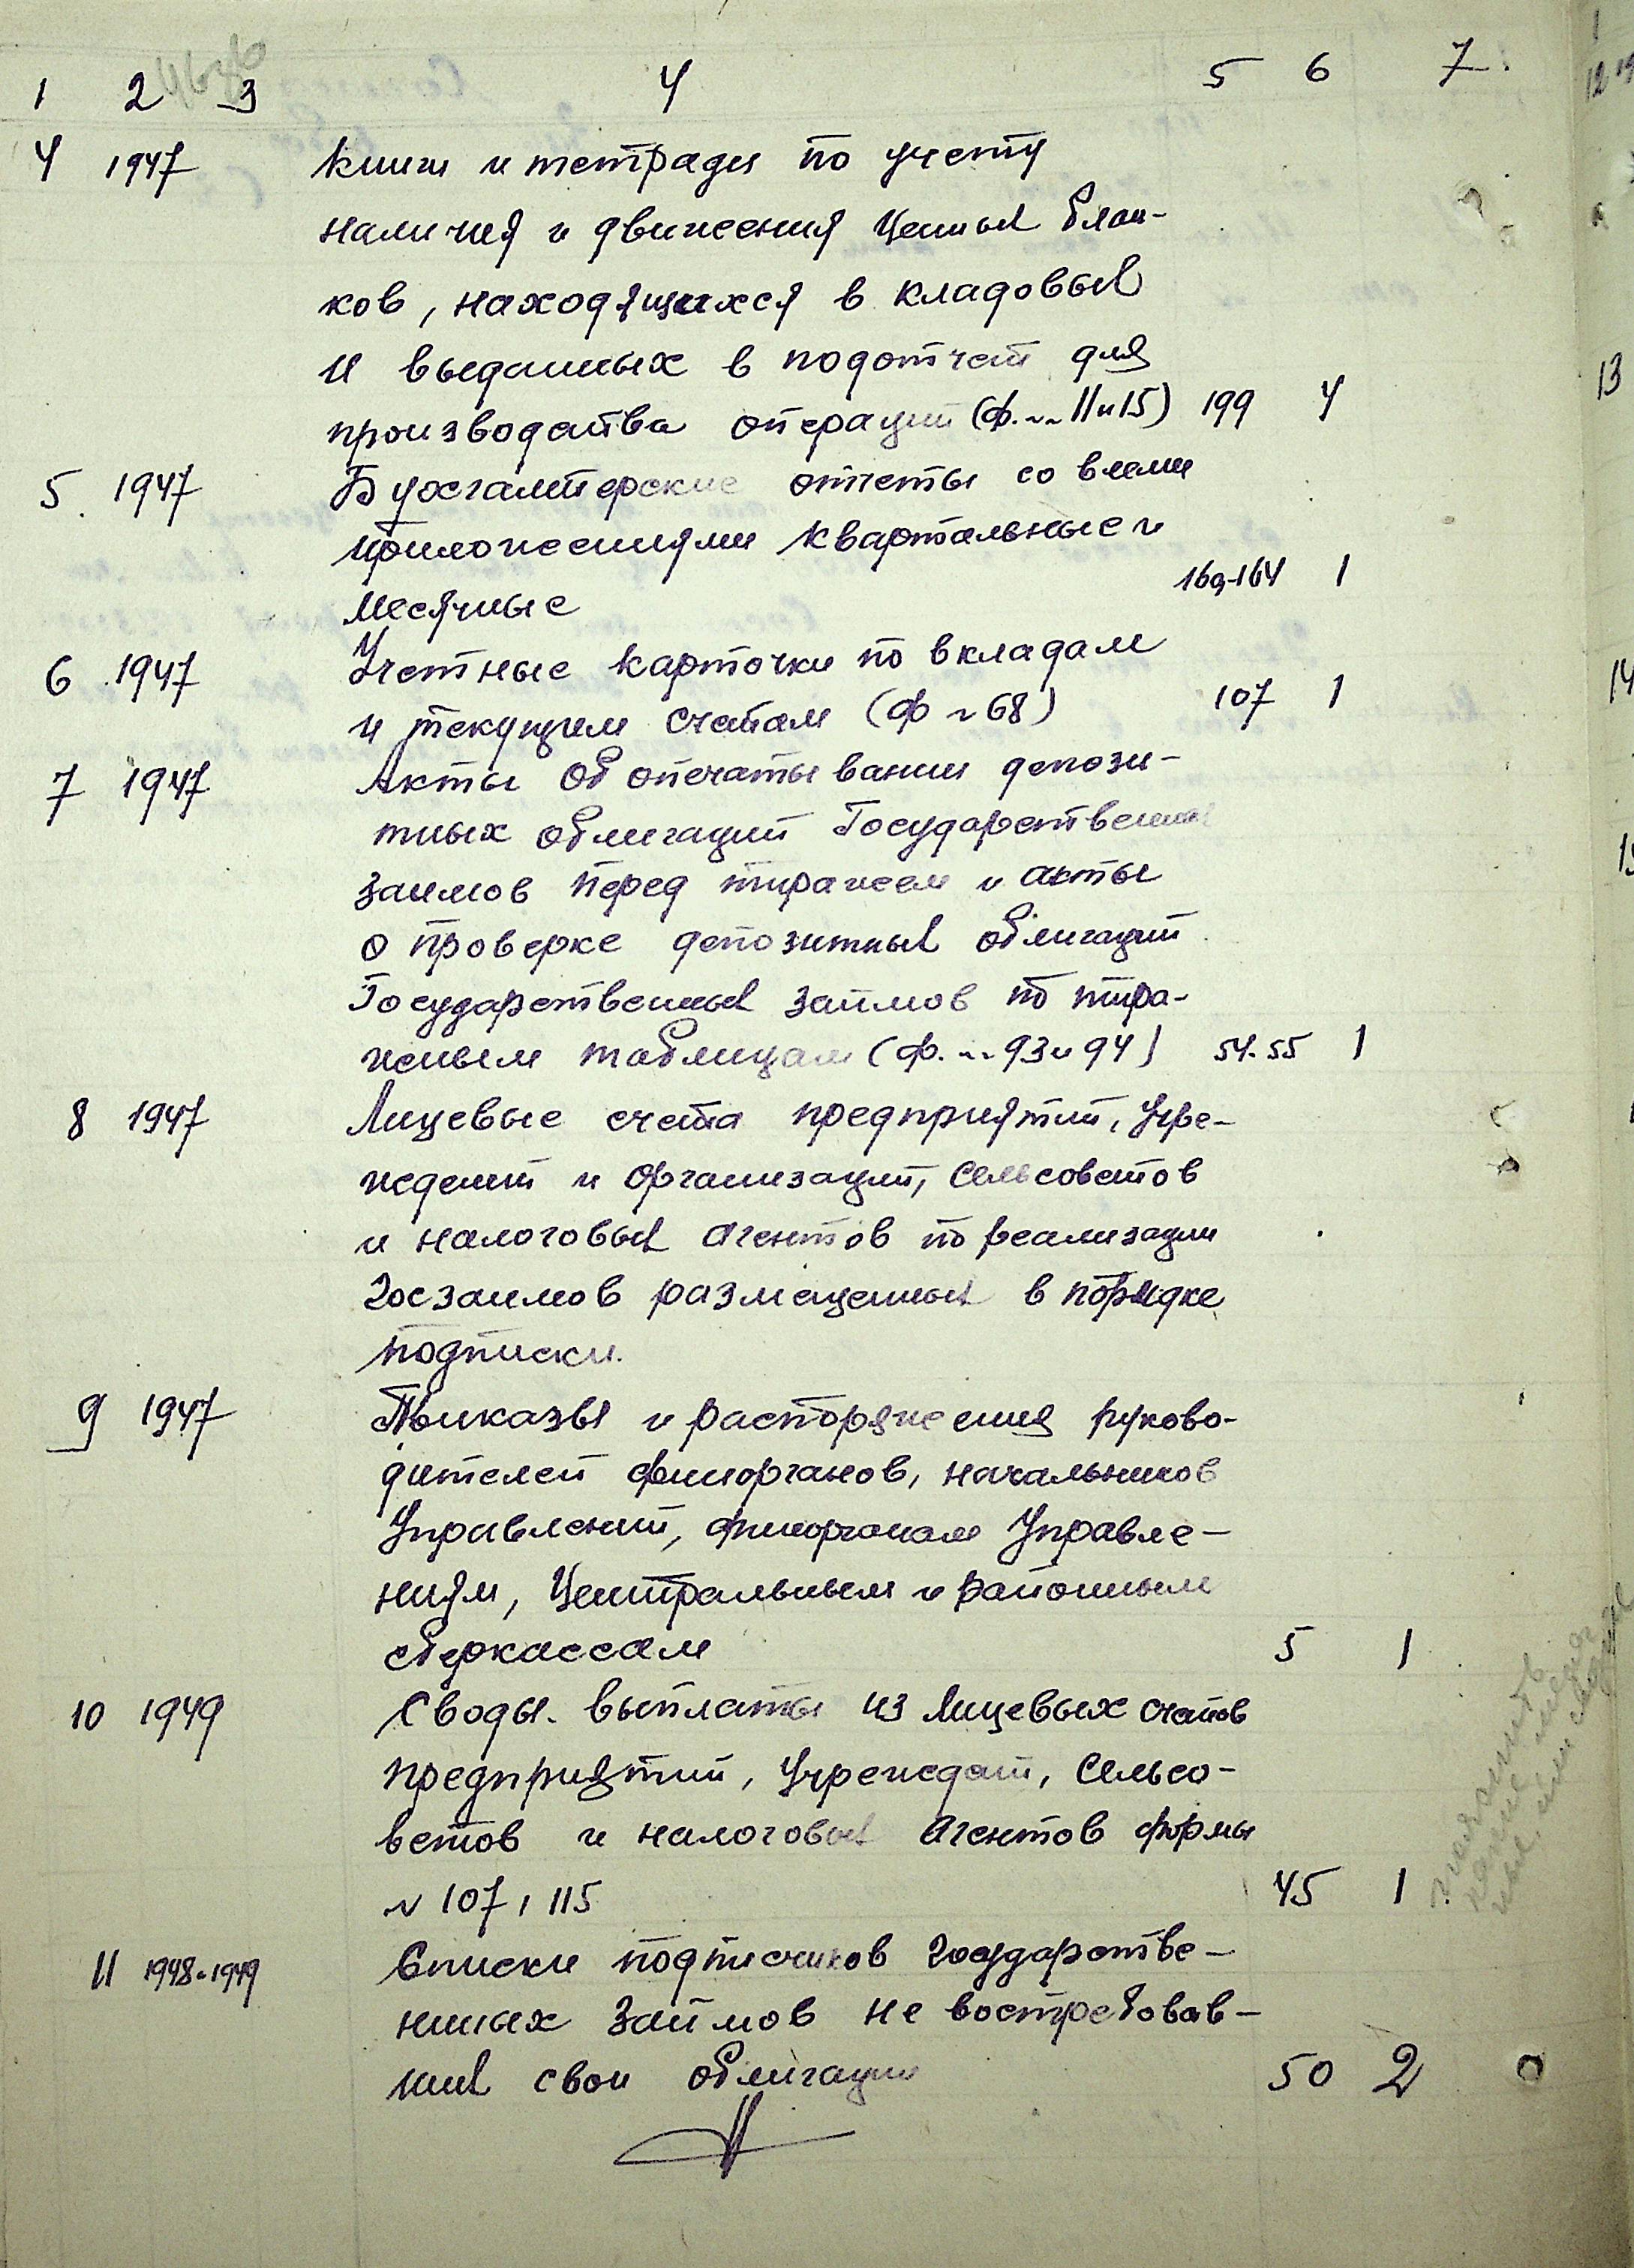 1 2 3 4 5 6 7
4 1947 Книги и тетради по учету
наличия и движения ценных блан-
ков, находящихся в кладовых
и выданных в подотчет для
производства операций (ф. №№ 11 и 15) 199 4
5 1947 Бухгалтерские отчеты со всеми
приложениями квартальные и
месячные 169-164 1
6 1947 Учетные карточки по вкладам
и текущим счетам (ф № 68) 107 1
7 1947 Акты об опечатывании депози-
тных облигаций Государственных
займов перед тиражем и акты
о проверке депозитных облигаций
Государственных займов по тира-
жным таблицам (ф. №№ 93 и 94) 54-55 1
8 1947 Лицевые счета предприятий, учре-
ждений и организаций, сельсоветов
и налоговых агентов по реализации
госзаимов размещенных в порядке
подписки.
9 1947 Приказы и распоряжения руково-
дителей финорганов, начальников
Управлений, финорганам Управле-
ниям, Центральным и районным
сберкассам 5 1
10 1949 Своды выплаты из лицевых счетов
предприятий, учреждений, сельсо-
ветов и налоговых агентов формы
№ 107, 115 45 1
11 1948-1949 Списки подписчиков государстве-
нных займов не востребовав-
ших свои облигации 50 2
12
13
14